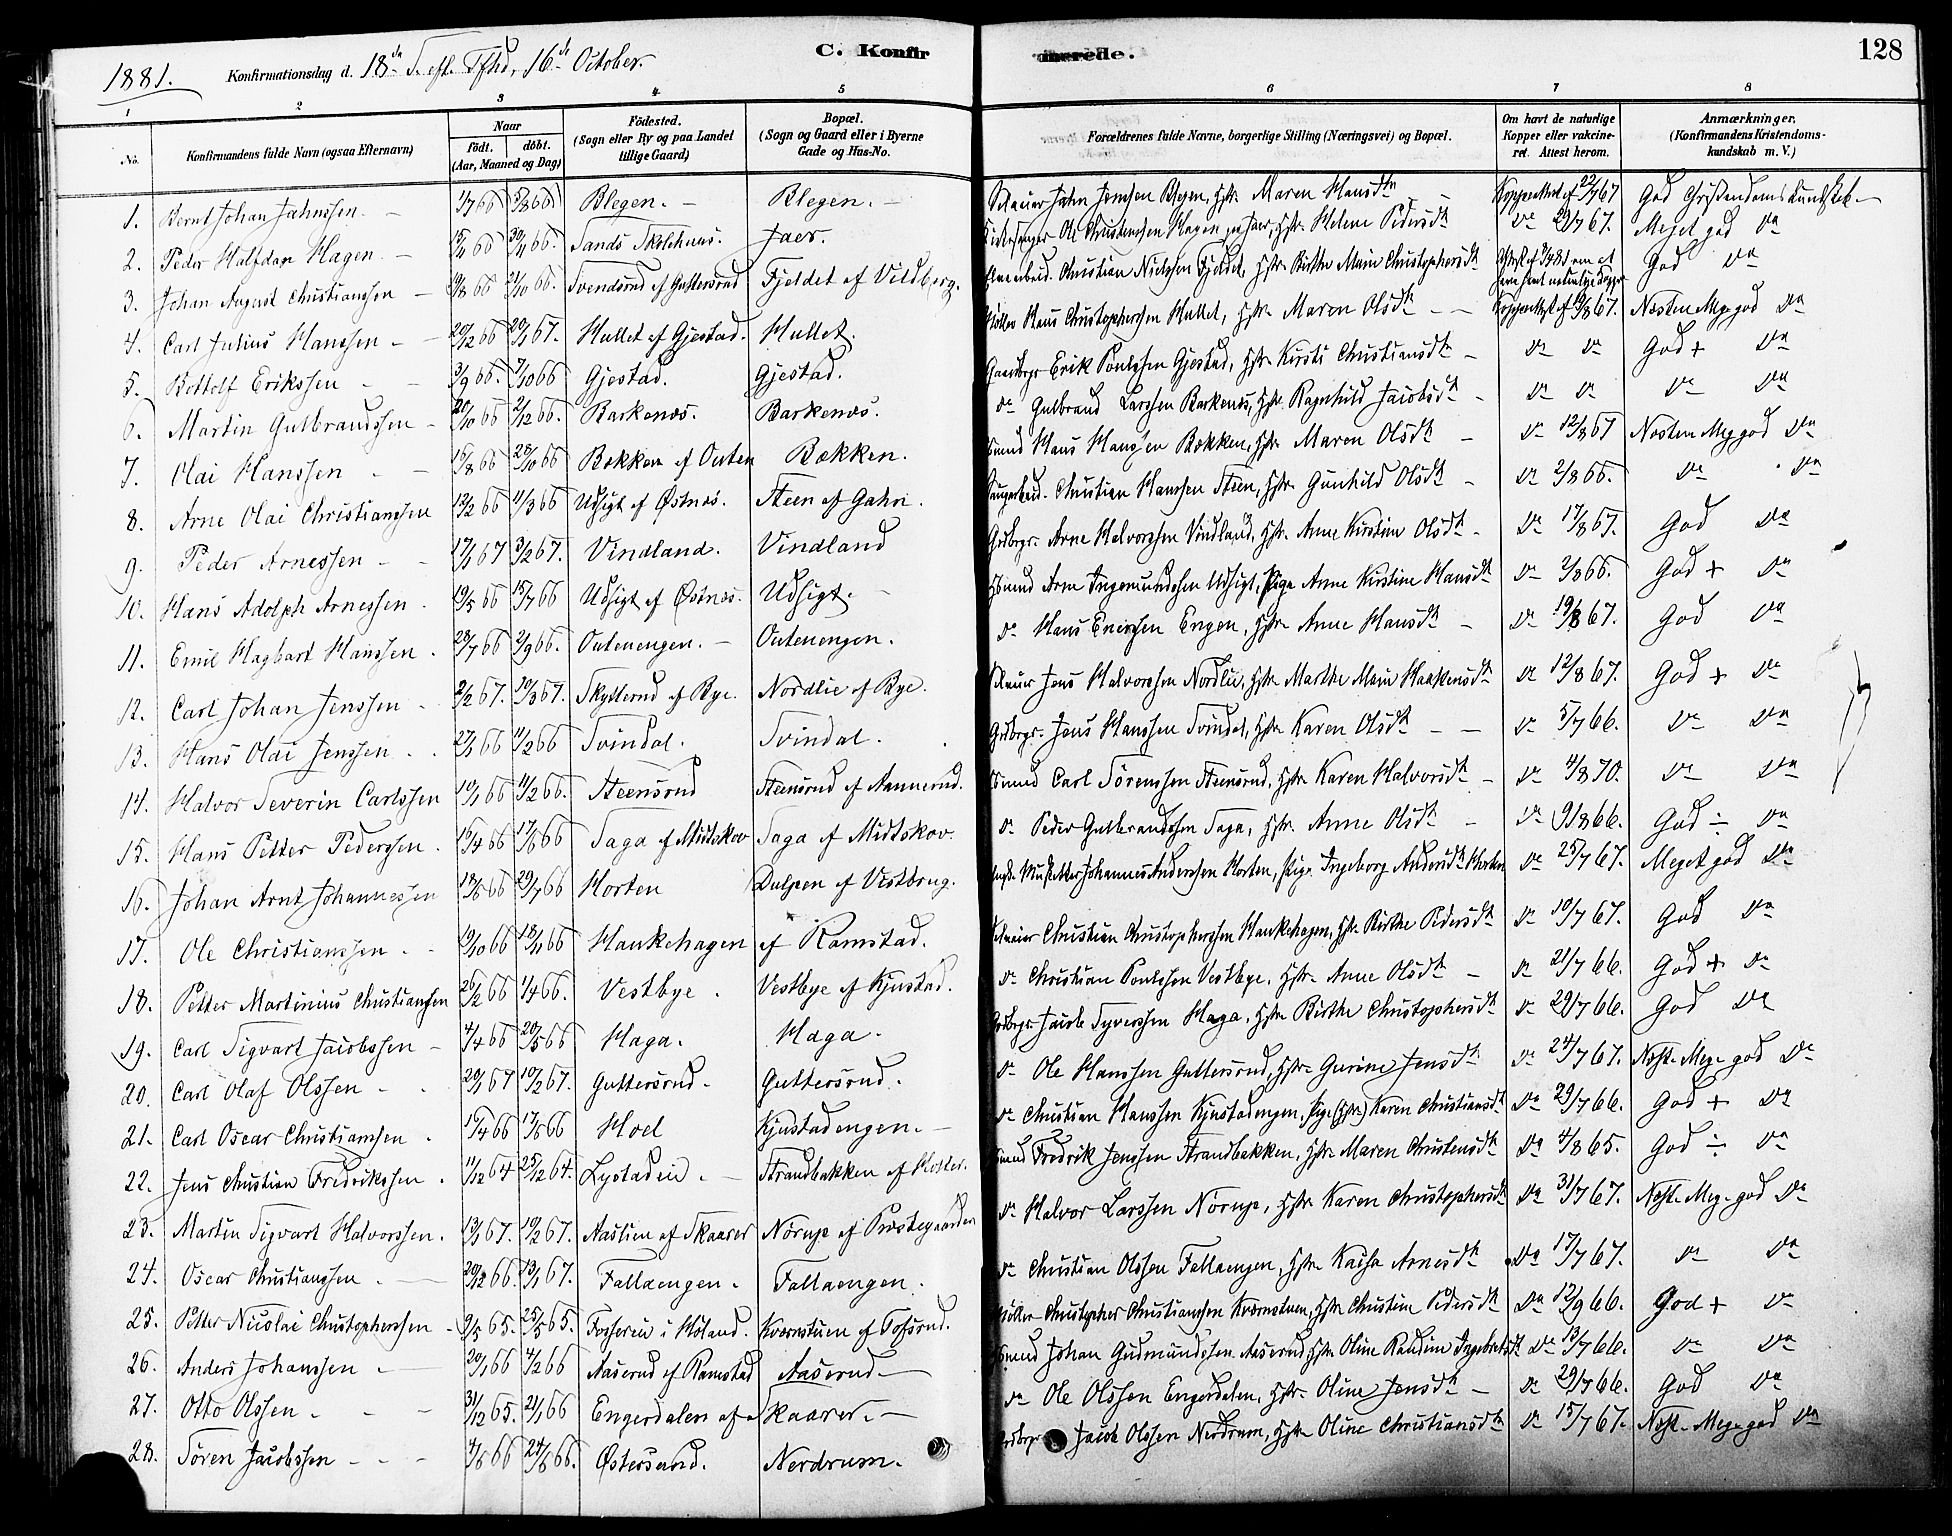 1881. Konfirmationsdag d. 18de S. eft. Tfhd, 16de October. C. Konfirmerede. 128
1 2 3 4 5 6 7 8
No. Konfirmandens fulde Navn (ogsaa Efternavn) Naar födt. döbt. (Aar, Maaned og Dag) Födested. (Sogn eller By og paa Landet tillige Gaard) Bopæl. (Sogn og Gaard eller i Byerne Gade og Hus-No. Forældrenes fulde Navne, borgerlige Stilling (Næringsvei) og Bopæl. Om havt de naturlige Kopper eller vakcineret. Attest herom. Anmærkninger, (Konfirmandens Kristendomskundskab m. V.)
1. Bernt Johan Jahnssen 1/7 66 5/8 66 Blegen. Blegen. Jahn Jenssen Blegen, Hstr. Maren Hansdtr Koppeattest af 22/7 67 God Christendomskundskab
2. Peder Halfdan Hagen 15/4 66 30/4 66. Sands Skolehuus. Jaer. Kirkesanger Ole Christenssen Hagen Jaer, Hstr. Helene Pedersdtr do 29/7 67. Meget god do
3. Johan August Christianssen 19/8 66 21/10 66. Svendsrud af Guttersrud Fjeldet af Vildberg. Christian Nielssen Fjeldet, Hstr. Birthe Marie Christophersdtr God do
4. Carl Julius Hanssen 20/12 66 20/1 67. Hullet af Gjestad. Hullet. Møller Hans Christopherssen Hullet, Hstr. Maren Olsdtr Koppeattest af 19/8 67. Næsten Meg. god do
5. Bottolf Erikssen 3/9 66. 7/10 66 Gjestad. Gjestad. Gaardbrgr Erik Poulssen Gjestad, Hstr. Kirsti Christiansdtr do do God + do
6. Martin Gulbrandssen 20/10 66 2/12 66. Barkenæs. Barkenæs. do Gulbrand Larssen Barkenæs, Hstr. Ragnhild Jacobsdtr do do do do
7. Olai Hanssen 16/8 66 28/10 66 Bækken af Outen Bækken. Hans Hanssen Bækken, Hstr. Maren Olsdtr do 12/8 67 Næsten Meg. god do
8. Arne Olai Christianssen 12/2 66 11/3 66 Udsigt af Østnæs. Steen af Gahn. Christian Hanssen Steen, Hstr. Gunhild Olsdtr do 2/8 66. do do
9. Peder Arnessen 17/1 67 3/2 67. Vindland. Vindland Grdbrgr. Arne Halvorssen Vindland, Hstr. Anne Kirstine Olsdtr do 17/8 67. God do
10. Hans Adolph Arnessen 19/5 66 15/7 66 Udsigt af Østnæs. Udsigt. Arne Ingemundssen Udsigt, Pige Anne Kirstine Hansdtr do 2/8 66. God + do
11. Emil Hagbart Hanssen 28/7 66 2/9 66. Outenengen. Outenengen. do Hans Engen, Hstr. Anne Hansdtr do 19/8 67. God do
12. Carl Johan Jenssen 2/2 67. 10/3 67. Skytterud af Bye. Nordlie af Bye. Jens Halvorssen Nordlie, Hstr. Marthe Marie Haakensdtr do 12/8 67. God + do
13. Hans Olai Jenssen 27/1 66 11/2 66 Svindal. Svindal. Grdbrgr. Jens Hanssen Svindal, Hstr. Karen Olsdtr do 5/7 66. do do
14. Halvor Severin Carlssen 10/1 66 11/2 66. Steensrud Steensrud af Aannerud. Carl Sørenssen Steensrud, Hstr. Karen Halvorsdtr do 4/8 70. do do
15. Hans Petter Pederssen 16/4 66 17/6 66 Saga af Midtskov Saga af Midtskov. do Peder Gulbrandssen Saga, Hstr. Anne Olsdtr do 9/8 66. God ÷ do
16. Johan Arnt Johannessen 18/6 66 29/7 66 Horten Dulpen af Vestbrug. Johannes Anderssen Horten, Pige Ingeborg Andersdtr Horten do 25/7 67. Meget god do
17. Ole Christianssen 19/10 66 18/11 66 Haukehagen af Ramstad. Christian Christopherssen Haukehagen, Hstr. Birthe Pedersdtr do 10/7 67. God do
18. Petter Martinius Christianssen 26/2 66 1/4 66. Vestbye. Vestbye af Kjustad. do Christian Poulssen Vestbye, Hstr. Anne Olsdtr do 21/7 66. God + do
19. Carl Sigvart Jacobssen 4/4 66 20/5 66 Haga. Haga. Grdbrgr. Jacob Syverssen Haga, Hstr. Birthe Christophersdtr do 29/7 66. God do
20. Carl Olaf Olssen 20/1 67 10/2 67. Guttersrud. Guttersrud. do Ole Hanssen Guttersrud, Hstr. Gurine Jensdtr do 24/7 67. Næst. Meg. god do
21. Carl Oscar Christianssen 15/4 66 17/6 66 Hoel Kjustadengen. do Christian Hanssen Kjustadengen, Pige (Hstr) Karen Christiansdtr do 29/7 66. God + do
22. Jens Christian Fredrikssen 11/12 64 25/12 64. Lystadeie. Strandbakken af Hotter. Fredrik Jenssen Strandbakken, Hstr. Maren Christensdtr do 4/8 65. God ÷ do
23. Martin Sigvart Halvorssen. 13/1 67. 10/2 67. Aastien af Skaarer Nørup af Præstegaarden do Halvor Larssen Nørup, Hstr. Karen Christophersdtr do 31/7 67. Næst. Meg. god do
24. Oscar Christianssen 20/12 66. 13/1 67. Fallaengen. Fallaengen. do Christian Olssen Fallaengen, Hstr. Kaisa Arnesdtr do 17/7 67. do do
25. Petter Nicolai Christopherssen 9/5 65. 25/5 65. Fossereie i Høland. Kværnstuen af Tofsrud. Møller Christopher Christianssen Kværnstuen, Hstr. Christine Pedersdtr do 12/9 66. God + do
26. Anders Johanssen 20/1 66 4/2 66 Aaserud af Ramstad Aaserud Johan Gudmundssen Aaserud, Hstr. Oline Randine Ingebretsdtr do 13/7 66. do do
27. Otto Olssen 31/12 65. 21/1 66 Engerdalen af Skaarer. do Ole Olssen Engerdalen, Hstr. Oline Jensdtr do 29/7 66. God do
28. Søren Jacobssen 4/6 66 24/6 66. Østersund. Nerdrum. Grdbrgr Jacob Olssen Nerdrum, Hstr. Oline Christiansdtr do 15/7 67. Næst. Meg. god do